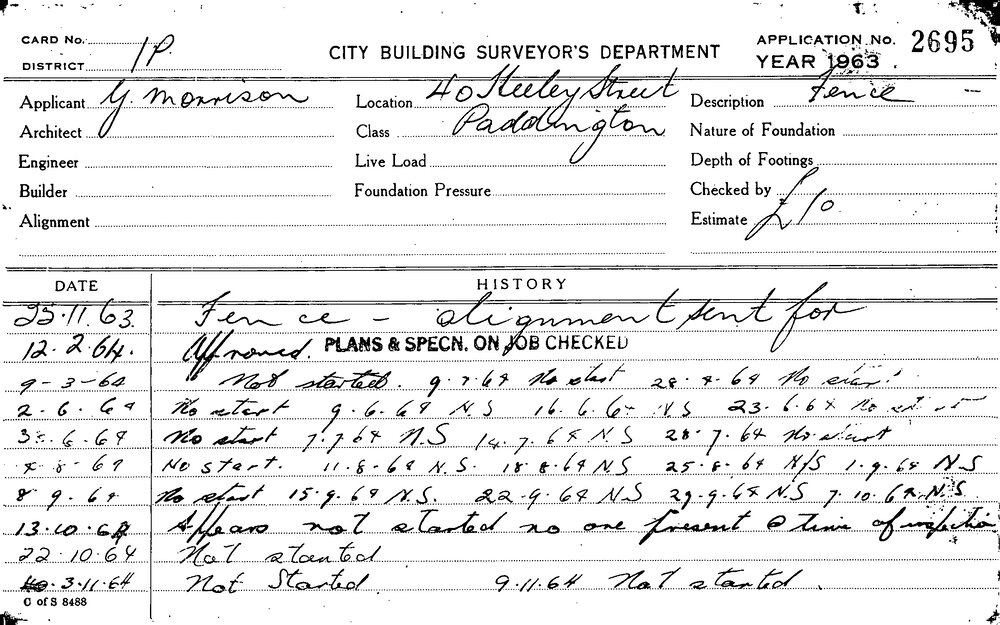 CARD No. 1P. CITY BUILDING SURVEYOR'S DEPARTMENT APPLICATION No. 2695
DISTRICT YEAR 1963
Applicant G. Morrison Location 40 Heeley Street Description Fence —
Architect Class Paddington Nature of Foundation
Engineer Live Load Depth of Footings
Builder Foundation Pressure Checked by
Alignment Estimate £10
DATE HISTORY
25.11.63. Fence - alignment sent for
12.2.64. Approved. PLANS & SPECN. ON JOB CHECKED
9-3-64 Not started. No start No start
2.6.64 No start 9.6.64 N.S 16.6.64 N.S 23.6.64 No start
30.6.64 No start 7.7.64 N.S 14.7.64 N.S 28.7.64 No start
4-8-64 No start. 11.8.64 N.S. 18.8.64 N.S 25.8.64 N/S 1.9.64 N.S
8.9.64 No start 15.9.64 N.S. 22.9.64 N.S 29.9.64 N.S 7.10.64 N.S.
13.10.64 Appears not started no one present @ time of inspection
22.10.64 Not started
3.11.64 Not Started 9.11.64 Not started.
C of S 8488